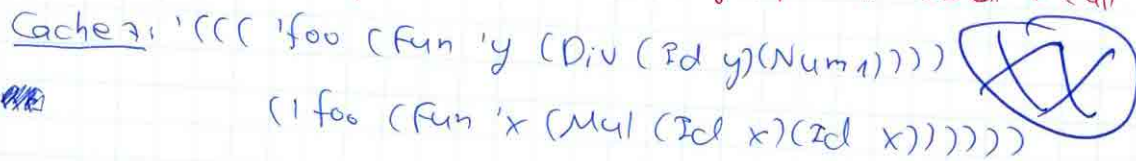 Cache 7: '((( 'foo (Fun 'y (Div (Id y)(Num 1))))
('foo (Fun 'x (Mul (Id x)(Id x))))))